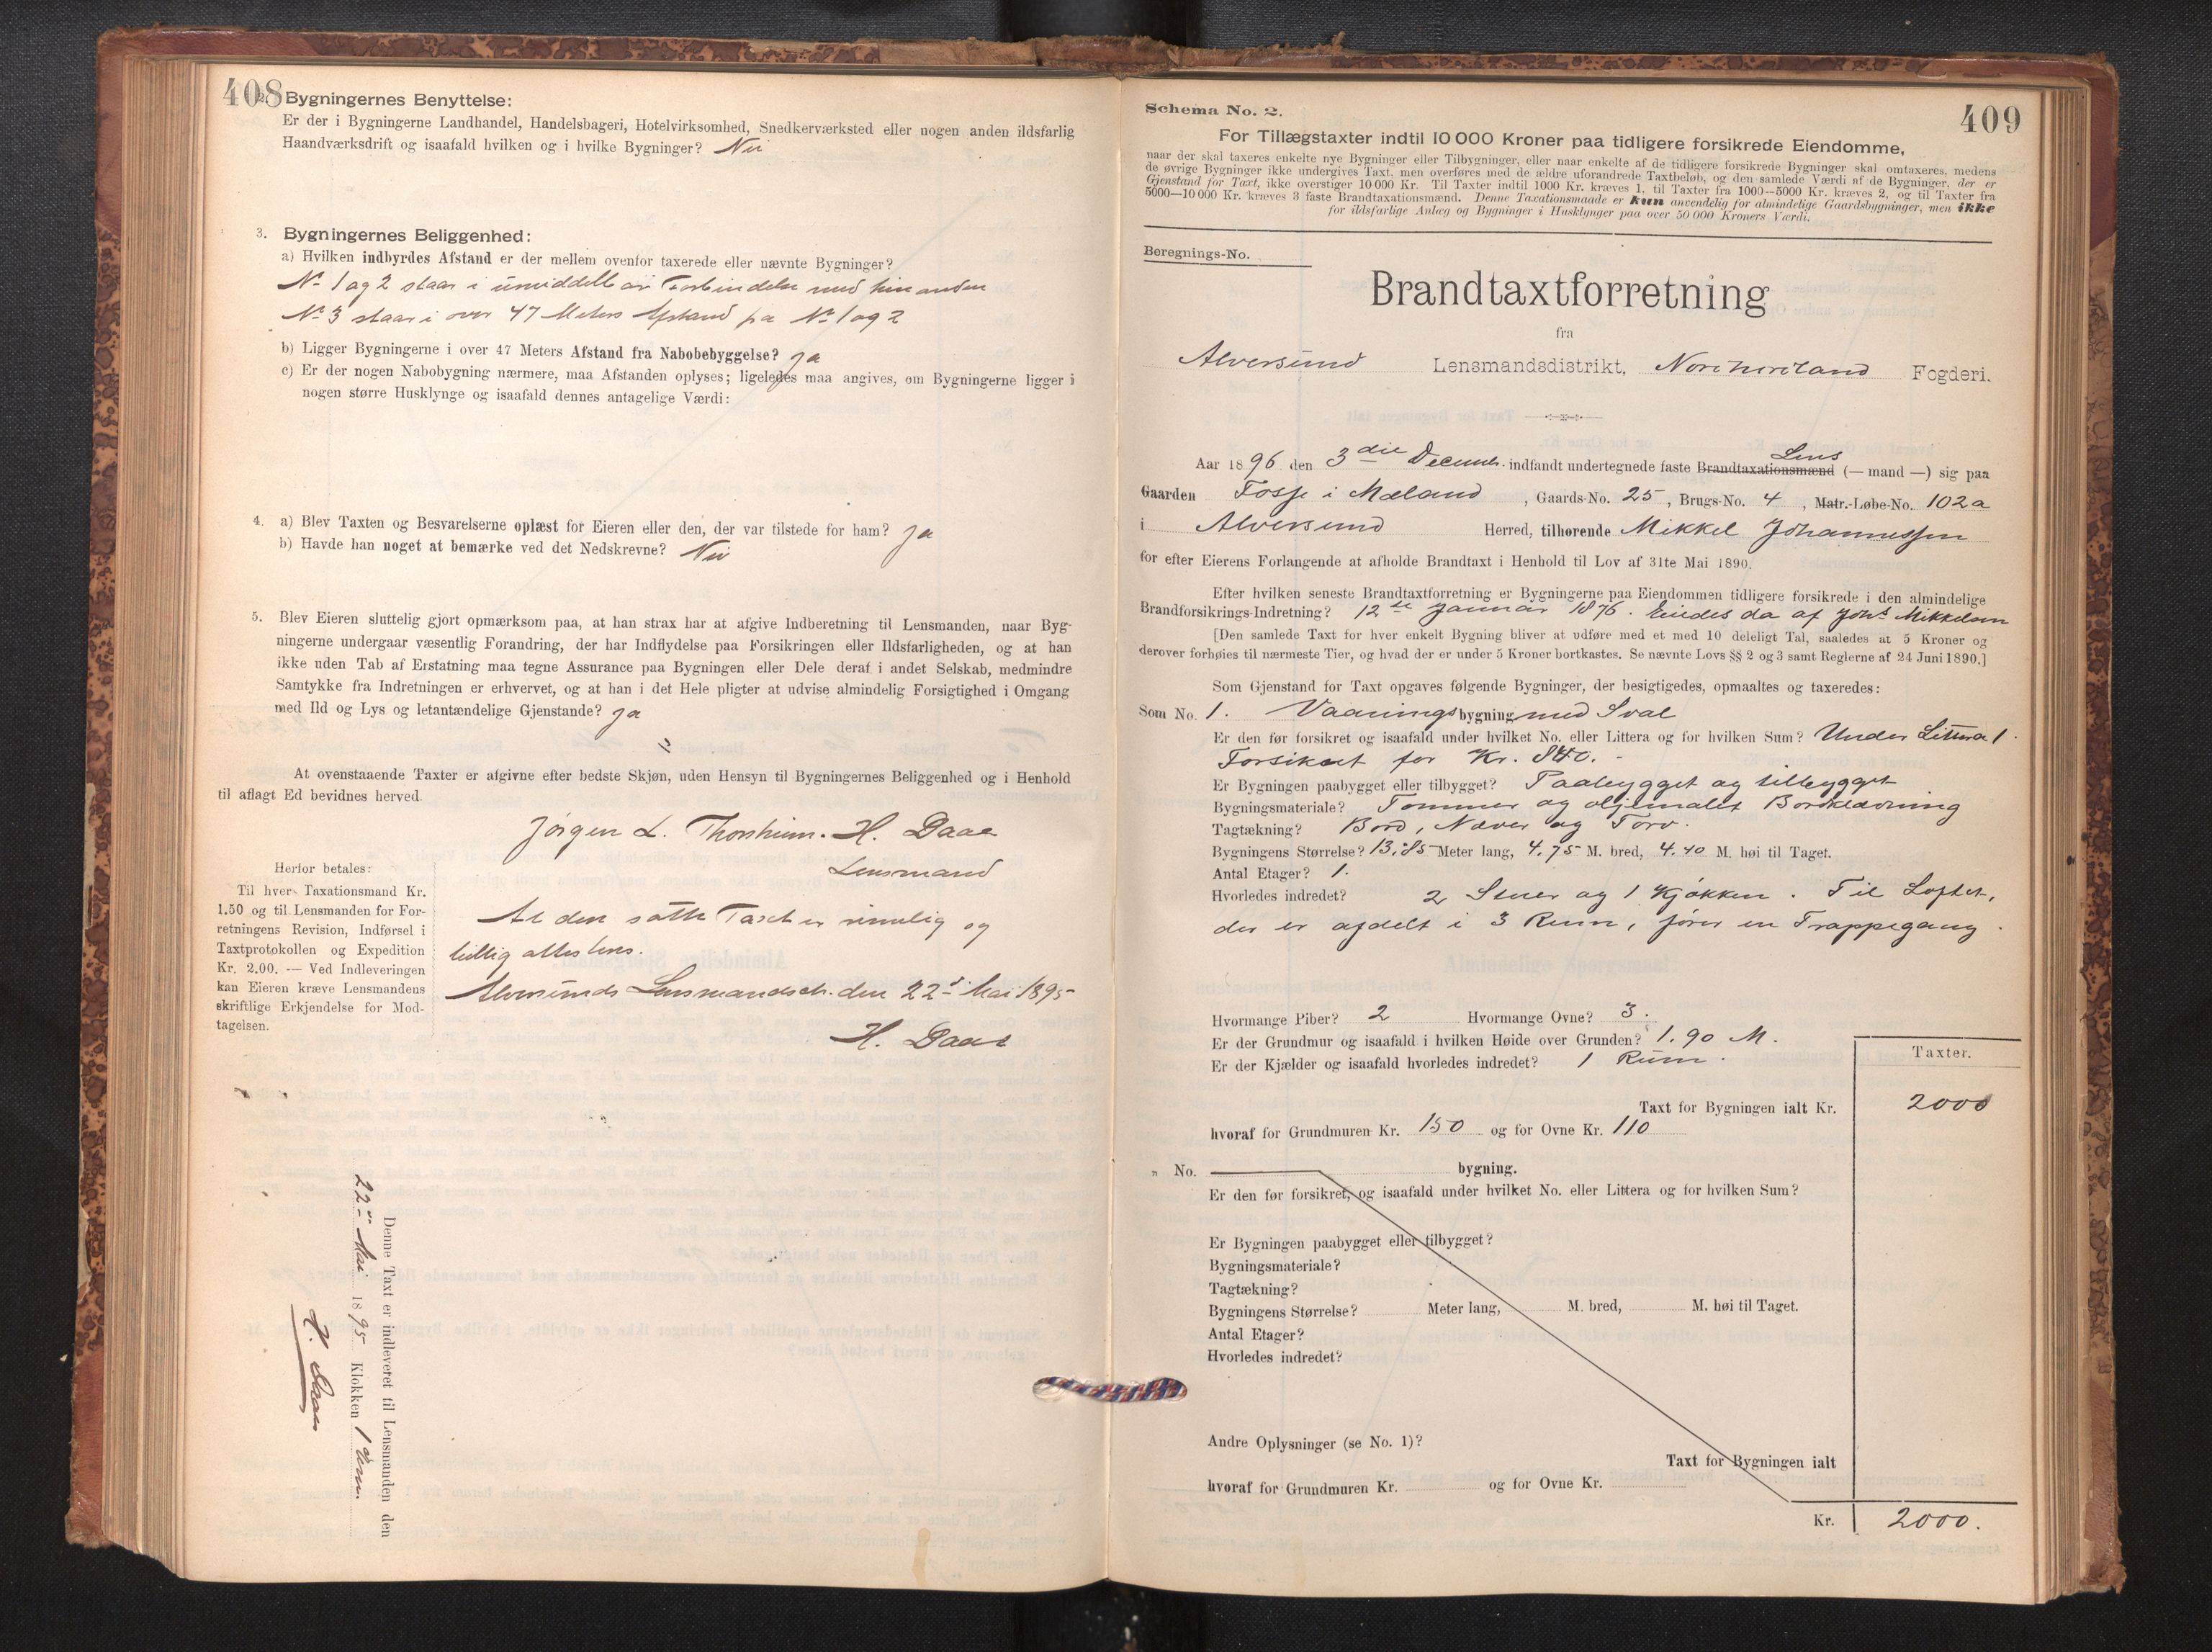 408
2. Bygningernes Benyttelse:
Er der i Bygningerne Landhandel, Handelsbageri, Hotelvirksomhed, Snedkerværksted eller nogen anden ildsfarlig
Haandværksdrift og isaafald hvilken og i hvilke Bygninger? Nei
3. Bygningernes Beliggenhed:
a) Hvilken indbyrdes Afstand er der mellem ovenfor taxerede eller nævnte Bygninger?
No 1 og 2 staar i umiddelbar Forbindelse med hinanden
No 3 staar i over 47 Meters Afstand fra No 1 og 2
b) Ligger Bygningerne i over 47 Meters Afstand fra Nabobebyggelse? Ja
c) Er der nogen Nabobygning nærmere, maa Afstanden oplyses; ligeledes maa angives, om Bygningerne ligger i
nogen større Husklynge og isaafald dennes antagelige Værdi:
4. a) Blev Taxten og Besvarelserne oplæst for Eieren eller den, der var tilstede for ham? Ja
b) Havde han noget at bemærke ved det Nedskrevne? Nei
5. Blev Eieren sluttelig gjort opmærksom paa, at han strax har at afgive Indberetning til Lensmanden, naar Byg-
ningerne undergaar væsentlig Forandring, der har Indflydelse paa Forsikringen eller Ildsfarligheden, og at han
ikke uden Tab af Erstatning maa tegne Assurance paa Bygningen eller Dele deraf i andet Selskab, medmindre
Samtykke fra Indretningen er erhvervet, og at han i det Hele pligter at udvise almindelig Forsigtighed i Omgang
med Ild og Lys og letantændelige Gjenstande? Ja
At ovenstaaende Taxter er afgivne efter bedste Skjøn, uden Hensyn til Bygningernes Beliggenhed og i Henhold
til aflagt Ed bevidnes herved.
Jørgen L. Thorsheim. H. Daae
Lensmand
Herfor betales:
Til hver Taxationsmand Kr.
1.50 og til Lensmanden for For-
retningens Revision, Indførsel i
Taxtprotokollen og Expedition
Kr. 2.00. — Ved Indleveringen
kan Eieren kræve Lensmandens
skriftlige Erkjendelse for Mod-
tagelsen.
At den satte Taxt er rimelig og
billig attesteres.
Alversunds Lensmandsch. den 22de Mai 1895
H. Daae
Denne Taxt er indleveret til Lensmanden den
22de Mai 1895 Klokken 1 Em.
H. Daae
409
Schema No. 2.
For Tillægstaxter indtil 10 000 Kroner paa tidligere forsikrede Eiendomme,
naar der skal taxeres enkelte nye Bygninger eller Tilbygninger, eller naar enkelte af de tidligere forsikrede Bygninger skal omtaxeres, medens
de øvrige Bygninger ikke undergives Taxt, men overføres med de ældre uforandrede Taxtbeløb, og den samlede Værdi af de Bygninger, der er
Gjenstand for Taxt, ikke overstiger 10 000 Kr. Til Taxter indtil 1000 Kr. kræves 1, til Taxter fra 1000—5000 Kr. kræves 2, og til Taxter fra
5000—10 000 Kr. kræves 3 faste Brandtaxationsmænd. Denne Taxationsmaade er kun anvendelig for almindelige Gaardsbygninger, men ikke
for ildsfarlige Anlæg og Bygninger i Husklynger paa over 50 000 Kroners Værdi.
Beregnings-No.
Brandtaxtforretning
fra
Alversund Lensmandsdistrikt, Nordhordland Fogderi.
Aar 1896 den 3die Decemb. indfandt undertegnede faste Brandtaxationsmænd Lens (— mand —) sig paa
Gaarden Fosse i Mæland, Gaards-No. 25, Brugs-No. 4, Matr.-Løbe-No. 102a
i Alversund Herred, tilhørende Mikkel Johannessen
for efter Eierens Forlangende at afholde Brandtaxt i Henhold til Lov af 31te Mai 1890.
Efter hvilken seneste Brandtaxtforretning er Bygningerne paa Eiendommen tidligere forsikrede i den almindelige
Brandforsikrings-Indretning? 12te Januar 1876. Eiedes da af Johs Mikkelsen
[Den samlede Taxt for hver enkelt Bygning bliver at udføre med et med 10 deleligt Tal, saaledes at 5 Kroner og
derover forhøies til nærmeste Tier, og hvad der er under 5 Kroner bortkastes. Se nævnte Lovs §§ 2 og 3 samt Reglerne af 24 Juni 1890.]
Som Gjenstand for Taxt opgaves følgende Bygninger, der besigtigedes, opmaaltes og taxeredes:
Som No. 1. Vaanings bygning med Sval
Er den før forsikret og isaafald under hvilket No. eller Littera og for hvilken Sum? Under Littera 1.
Forsikret for Kr. 840.
Er Bygningen paabygget eller tilbygget? Paabygget og tilbygget
Bygningsmateriale? Tømmer og oljemalet Bordklædning
Tagtækning? Bord, Næver og Torv.
Bygningens Størrelse? 13,85 Meter lang, 4.75 M. bred, 4.40 M. høi til Taget.
Antal Etager? 1.
Hvorledes indredet? 2 Stuer og 1 Kjøkken. Til Loftet,
der er afdelt i 3 Rum, fører en Trappegang.
Hvormange Piber? 2 Hvormange Ovne? 3.
Er der Grundmur og isaafald i hvilken Høide over Grunden? 1.90 M.
Er der Kjælder og isaafald hvorledes indredet? 1 Rum.
Taxter.
Taxt for Bygningen ialt Kr. 2000
hvoraf for Grundmuren Kr. 150 og for Ovne Kr. 110
„ No. bygning.
Er den før forsikret, og isaafald under hvilket No. eller Littera og for hvilken Sum?
Er Bygningen paabygget eller tilbygget?
Bygningsmateriale?
Tagtækning?
Bygningens Størrelse? Meter lang, M. bred, M. høi til Taget.
Antal Etager?
Hvorledes indredet?
Andre Oplysninger (se No. 1)?
Taxt for Bygningen ialt
hvoraf for Grundmuren Kr. og for Ovne Kr.
Kr. 2000.